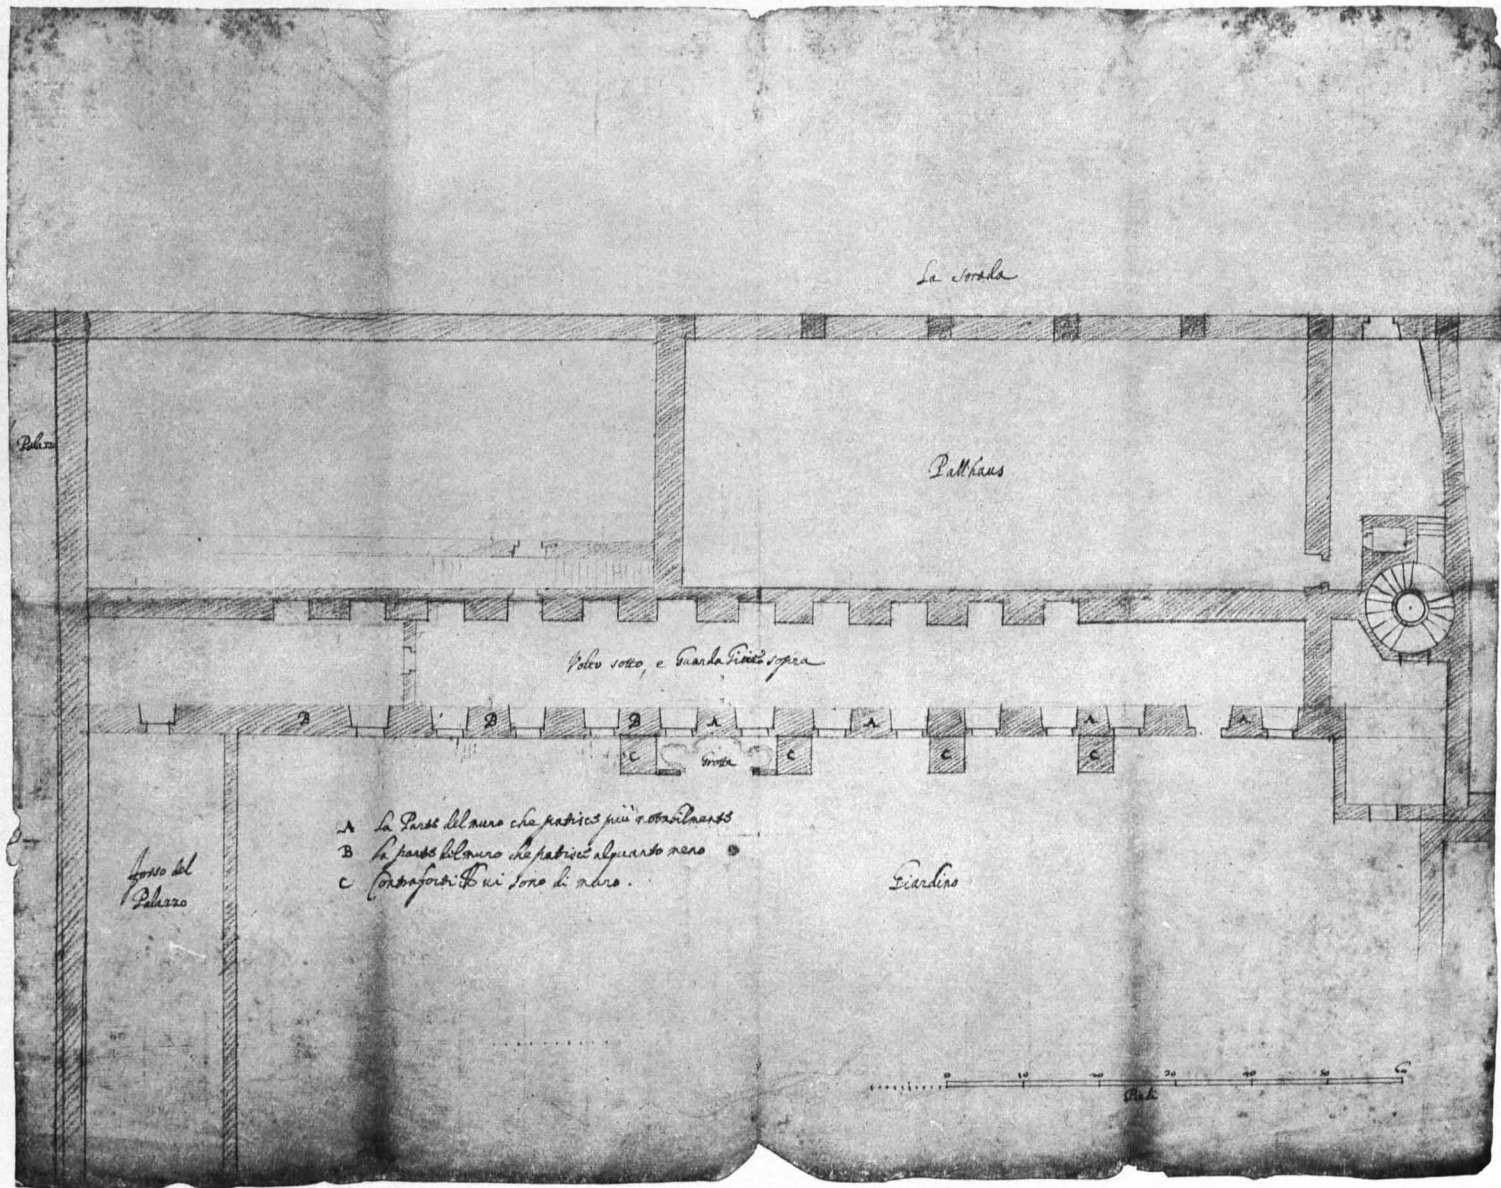 La strada
Palazzo
Pallhaus
Volto sotto, e Guarda sopra
B B B A A A A
C Grotta C C C
A La Parte del muro che patisce più notabilmente
B La parte del muro che patisce alquanto meno
C Contraforti vi sono di muro.
fosso del
Palazzo
Giardino
0 10 20 30 40 50 60
Piedi